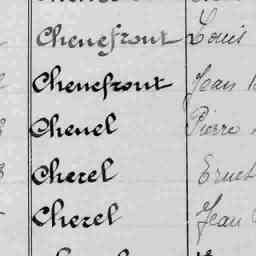 Chenefront Louis
Chenefront Jean
Chenel Pierre
Cherel Ernest
Cherel Jean